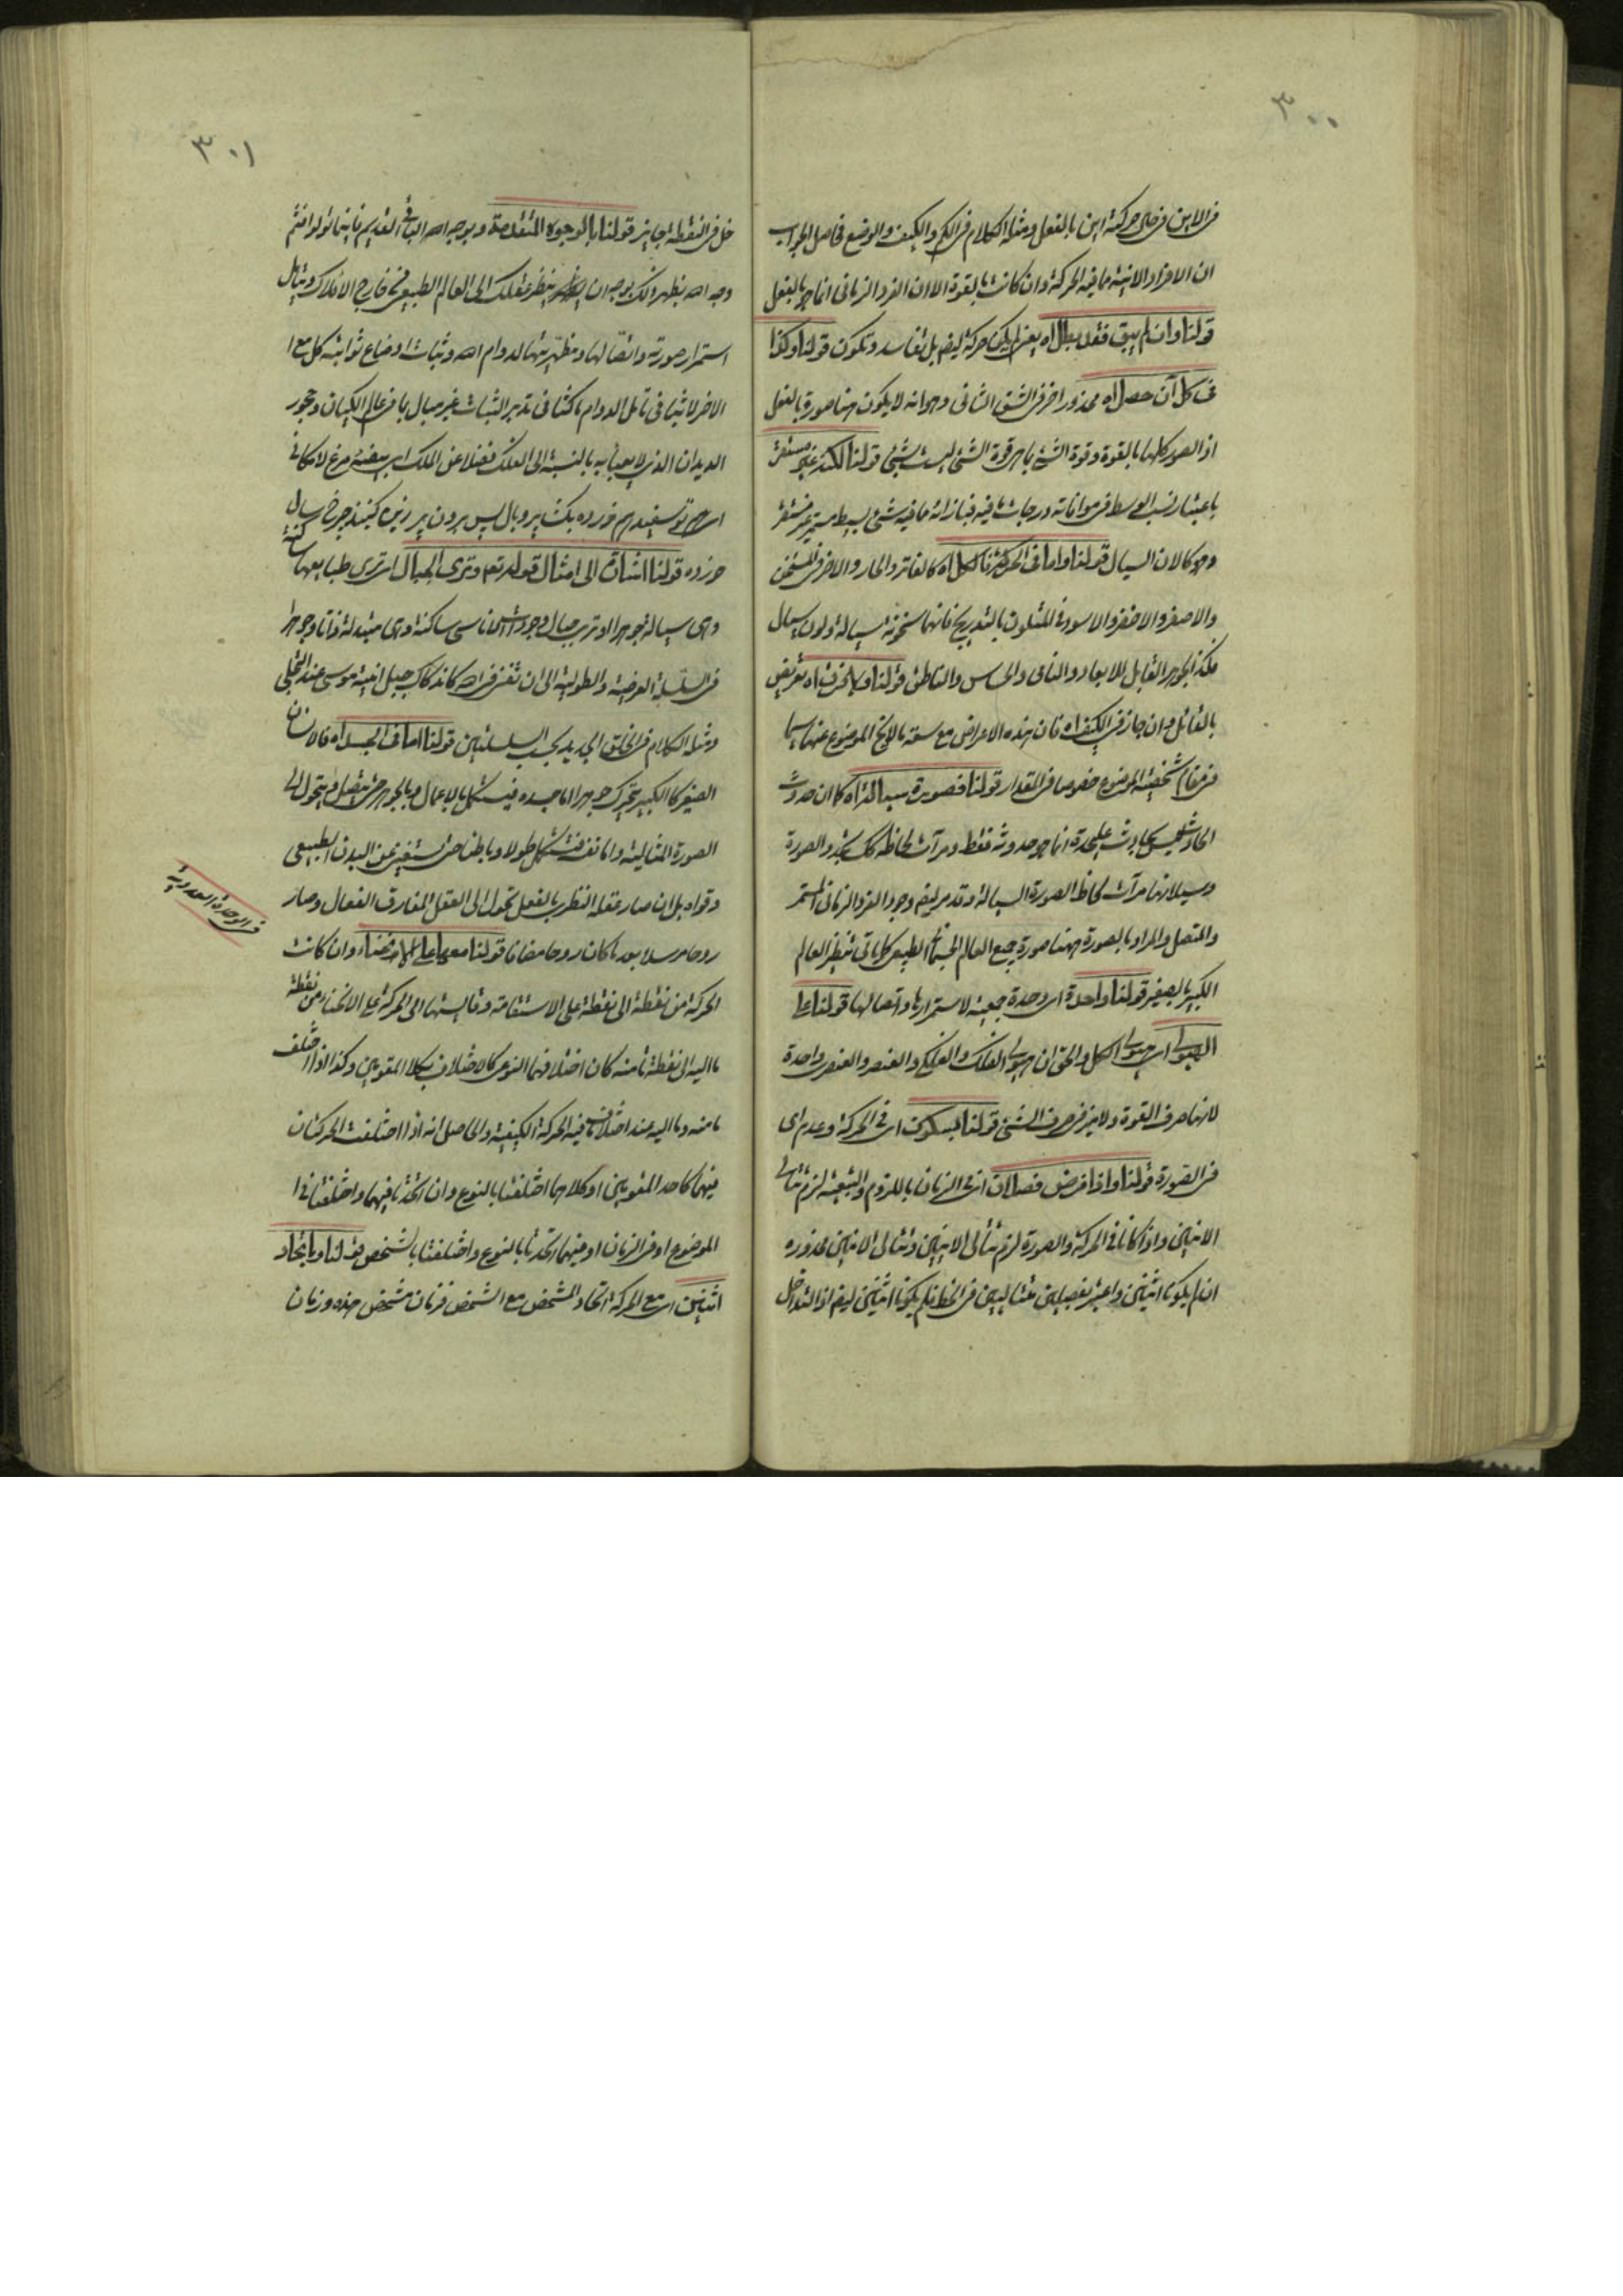 ٣٠٠
فى الاين فى حال حركته اين بالفعل ومثله الكلام فى الكم والكيف والوضع فحاصل الجواب
ان الافراد الانية مما فيه الحركة وان كانت بالقوة الا ان الفرد الزمانى انما هو بالفعل
قولنا وان لم يبق فقد بطل اه يعنى لم يكن حركة ايضا بل تفاسد وتكون قولنا وكذا
فى كل آن حصل اه محذور اخر فى الشق الثانى وهو انه لا يكون هنا صورة بالفعل
اذ الصور كلها بالقوة وقوة الشئ بما هى قوة الشئ ليست بشئ قولنا لكنه غير مستقر
باعتبار نسب الوسط فى موافاته درجات ما فيه فبازائه ما فيه شئ بسيط مستمر غير مستقر
وهو كالان السيال قولنا واما فى الحركة اه كالفاتر والحار والاخر فى المتسخن
والاصفر والاخضر والاسود فى المتلون بالتدريج فانهما سخونة سيالة ولون سيال
فكذا الجوهر القابل للابعاد والنامى والحساس والناطق قولنا اه تعريض
بالقائل وان جاز فى الكيف اه فان هذه الاعراض مع سعة بالانح الموضوع عنها سيما
فى مقام شخصية الموضوع خصوصا فى المقدار قولنا فصورة سيالة اه كما ان حدوث
الحادث ليس بحادث عليحدة انما هو حدوثه فقط ومرآت لحاظه كك تجدد الصورة
وسيلانها مرآت لحاظ الصورة السيالة وقد مر ايضا وجود الفرد الزمانى المستمر
والمتصل والمراد بالصورة ههنا صورة جميع العالم الجسمانى الطبيعى كما ياتى تنظير العالم
الكبير بالصغير قولنا واحدة اى وحدة جمعية لاستمرارها واتصالها قولنا على
الهيولى اى هيولى الكل والحق ان هيولى الفلك والفلكى والعنصر والعنصرى واحدة
لانها صرف القوة ولا ميز فى صرف الشئ قولنا بسكون اى فى الحركة وعدم اى
فى الصورة قولنا واذا فرض فصل ان اى فى الزمان باللزوم والتبعية لزم تتالى
الانيين واذا كانا فى الحركة والصورة لزم تتالى الانيين وتتالى الانيين محذوره
ان لم يكونا اثنين واعتبر بفصلين متتاليين فى الخط فلم يكونا اثنين ايضا اذ التداخل
٣٠١
خل فى النقطة جايز قولنا بالوجوه المتقدمة وبوجه الله الباقى القديم فاينما تولوا فثم
وجه الله يظهر لك بوجه ان ينظر عقلك الى العالم الطبيعى فى خارج الافلاك ويتامل
استمرار صورته واتصالها ومظهريتها لدوام الله وثبات اوضاع ثوابته كل مع ا
الاخر لاثيا فى تامل الدوام ماكثا فى تدبر الثبات غير مبال بما فى عالم الكيان وجحور
الديدان الذى لا يعبأ به بالنسبة الى الفلك فضلا عن الملك اى بيضه مرغ لامكانى
اى تو سفيد هم زرده بكشا پر وبال پس برون پر زين گنبد چرخ سال
خورده قولنا اشارة الى امثال قوله تعم وترى الجبال اى ترى طبايعها ساكنة
وهى سيالة جوهرا او ترى جبال وجودات الاناسى ساكنة وهى متبدلة ذاتا وجوهرا
فى السلسلة العرضية والطولية الى ان تفنى فى الله كاندكاك جبل انية موسى عند التجلى
ومثله الكلام فى الخلق الجديد بحسب السلسلتين قولنا اما فى الجسد اه فالانسان
الصغير كالكبير يتحرك جوهرا اما جسده فيستكمل بالاعمال وبالجوهر حتى يتصل ويتحول الى
الصورة المثالية واما نفسه فتستكمل طولا وباطنا حتى يستغنى عن البدن الطبيعى
وقواه بل ان صار عقله النظرى بالفعل تحول الى العقل المفارق الفعال وصار
روحا مرسلا بعد ما كان روحا مضافا قولنا معها على الانحناء وان كانت
الحركة من نقطة الى نقطة على الاستقامة وقايستها الى الحركة على الانحناء من نقطة
ما اليه الى نقطة ما منه كان اختلافهما النوعى كالاختلاف بكلا المقومين وكذا اذا اختلف
ما منه وما اليه عند اختلاف ما فيه الحركة الكيفية والحاصل انه اذا اختلفت الحركتان
فيهما كاحد المقومين او كلاهما اختلفتا بالنوع وان اتحدتا فيهما واختلفتا فى ا
الموضوع او فى الزمان او فيهما اتحدتا بالنوع واختلفتا بالشخص قولنا وباتحاد
اثنين اى مع الحركة اتحاد المشخص مع الشخص فزمان مشخص هذه وزمان
فى الوحدة العددية